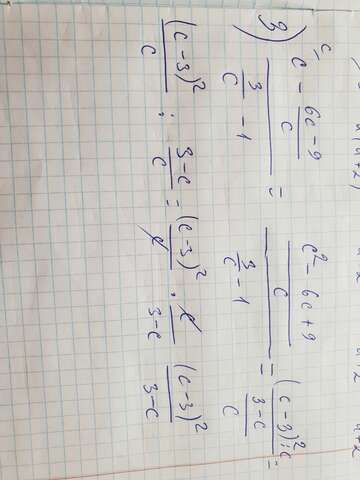 3) (c - (6c-9)/c) / (3/c - 1) = ((c² - 6c + 9)/c) / (3/c - 1) = ((c-3)² : c) / ((3-c)/c) =
(c-3)²/c : (3-c)/c = (c-3)²/c · c/(3-c) (c-3)²/(3-c)